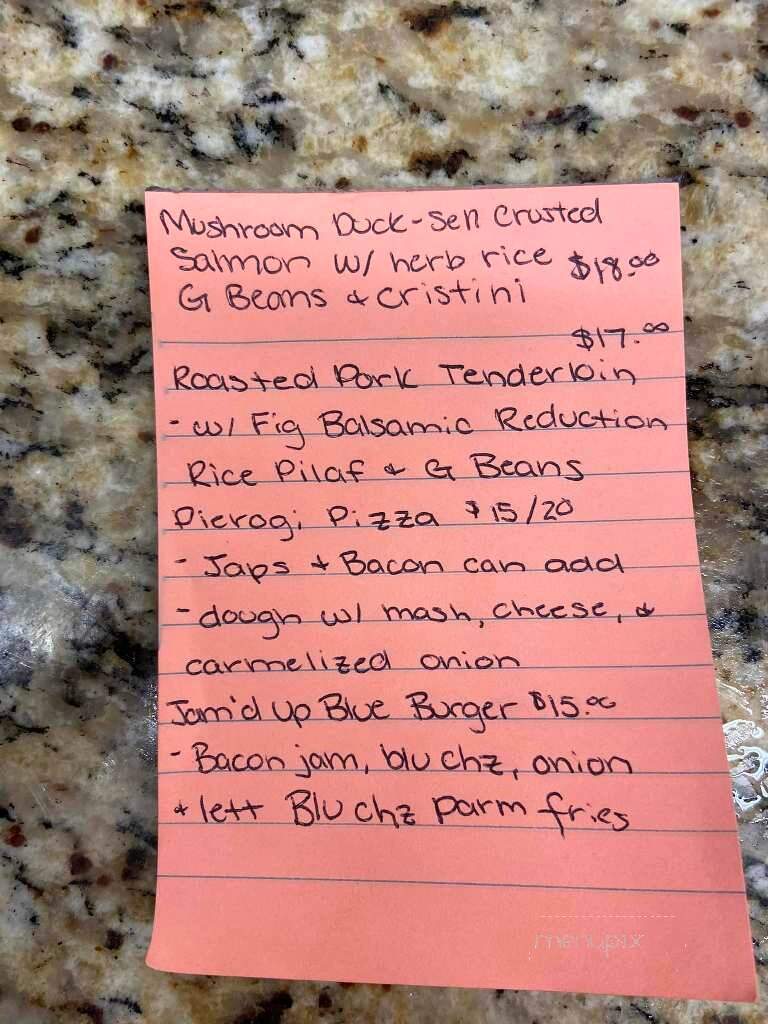 Mushroom Duck-sell Crusted
Salmon w/ herb rice $18.00
G Beans & Cristini
$17.00
Roasted Pork Tenderloin
- w/ Fig Balsamic Reduction
Rice Pilaf & G Beans
Pierogi Pizza $15/20
- Japs & Bacon can add
- dough w/ mash, cheese, &
carmelized onion
Jam'd Up Blue Burger $15.00
- Bacon jam, blu chz, onion
& lett Blu chz parm fries
menupix